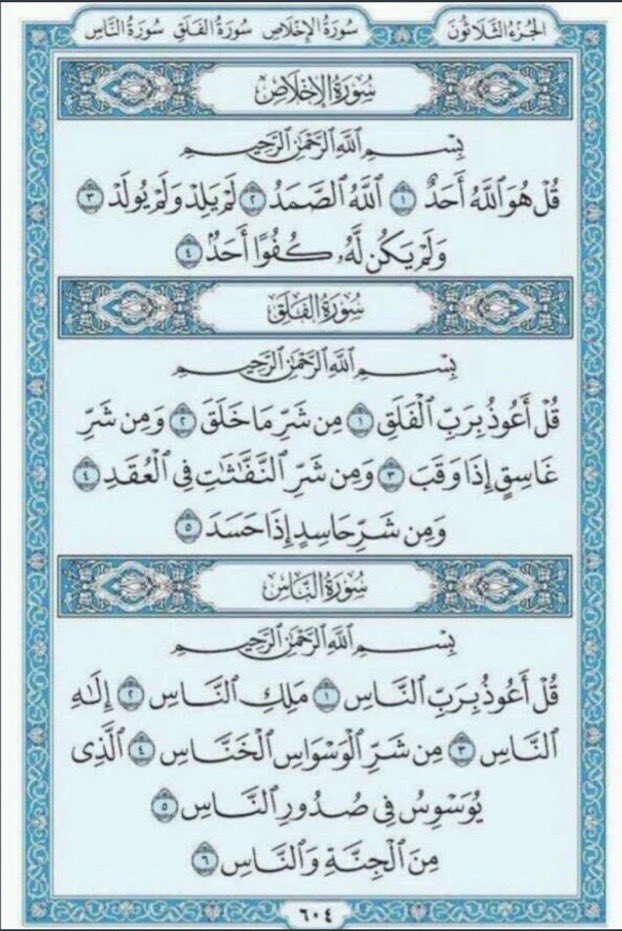 الجُزْءُ الثَّلَاثُونَ
سُورَةُ الإِخْلَاصِ سُورَةُ الفَلَقِ سُورَةُ النَّاسِ
سُورَةُ الإِخْلَاصِ
بِسْمِ اللَّهِ الرَّحْمَٰنِ الرَّحِيمِ
قُلْ هُوَ اللَّهُ أَحَدٌ ١ اللَّهُ الصَّمَدُ ٢ لَمْ يَلِدْ وَلَمْ يُولَدْ ٣
وَلَمْ يَكُن لَّهُۥ كُفُوًا أَحَدٌۢ ٤
سُورَةُ الفَلَقِ
بِسْمِ اللَّهِ الرَّحْمَٰنِ الرَّحِيمِ
قُلْ أَعُوذُ بِرَبِّ الْفَلَقِ ١ مِن شَرِّ مَا خَلَقَ ٢ وَمِن شَرِّ
غَاسِقٍ إِذَا وَقَبَ ٣ وَمِن شَرِّ النَّفَّٰثَٰتِ فِي الْعُقَدِ ٤
وَمِن شَرِّ حَاسِدٍ إِذَا حَسَدَ ٥
سُورَةُ النَّاسِ
بِسْمِ اللَّهِ الرَّحْمَٰنِ الرَّحِيمِ
قُلْ أَعُوذُ بِرَبِّ النَّاسِ ١ مَلِكِ النَّاسِ ٢ إِلَٰهِ
النَّاسِ ٣ مِن شَرِّ الْوَسْوَاسِ الْخَنَّاسِ ٤ الَّذِي
يُوَسْوِسُ فِي صُدُورِ النَّاسِ ٥
مِنَ الْجِنَّةِ وَالنَّاسِ ٦
٦٠٤